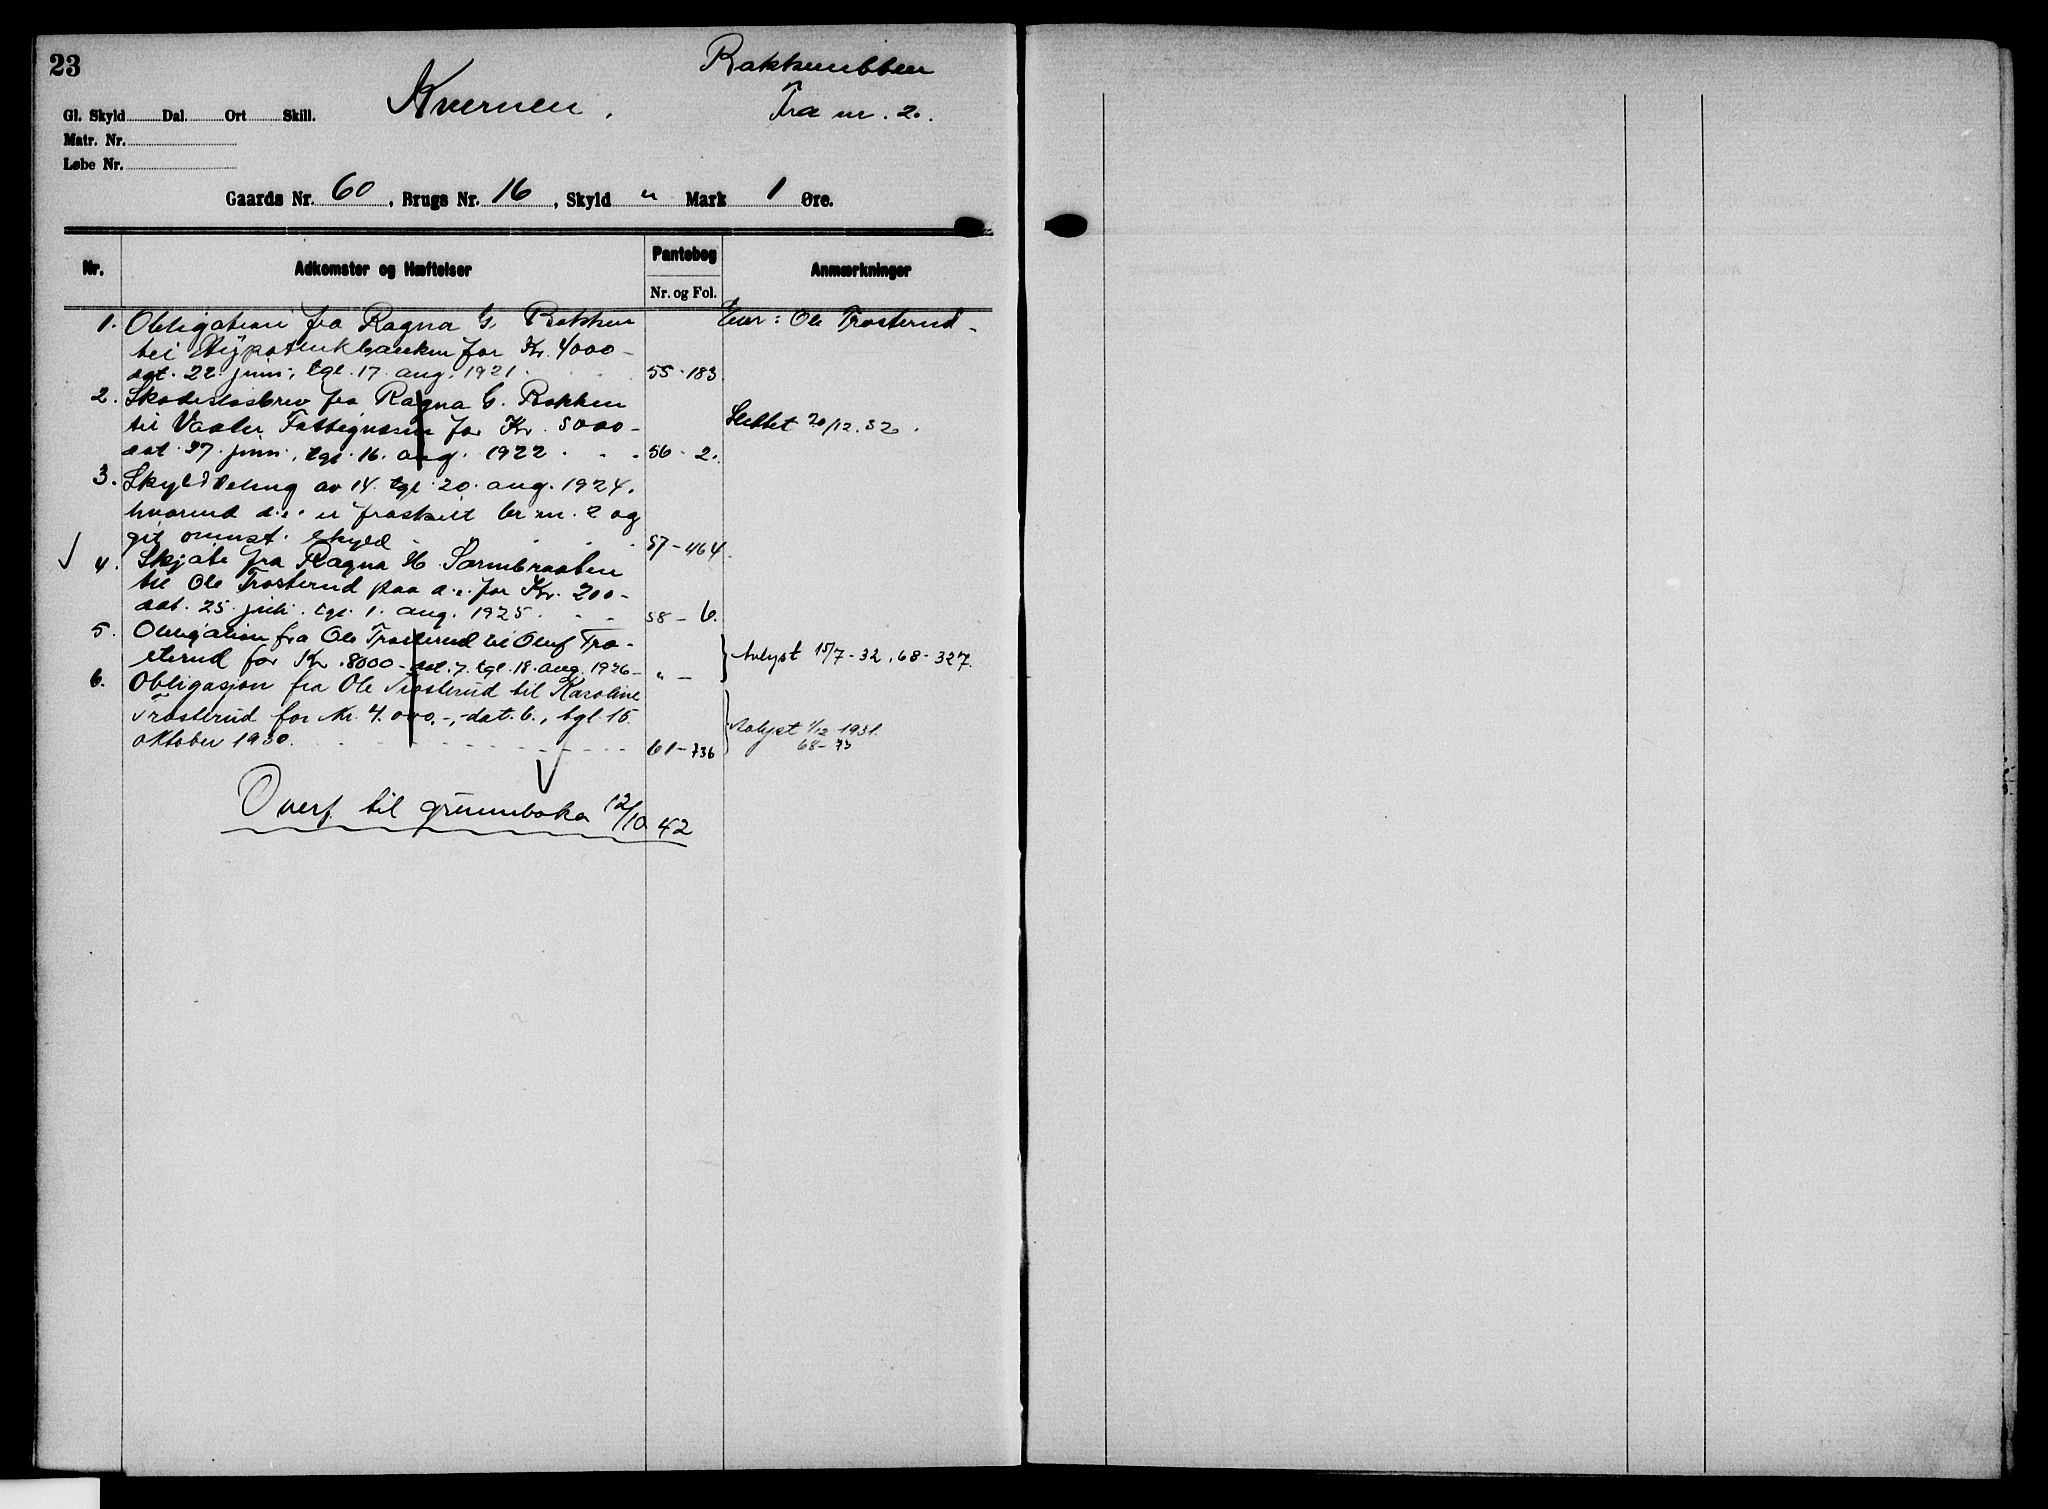 23
Kvernen.
Fra nr. 2.
Gl. Skyld Dal. Ort Skill.
Matr. Nr.
Løbe Nr.
Gaards Nr. 60, Brugs Nr. 16, Skyld " Mark 1 Øre.
Nr. Adkomster og Hæftelser Pantebog Anmærkninger
Nr. og Fol.
1. Obligation fra Ragna G. Bakken Eier: Ole Trøsterud
til Hypotekbanken for Kr. 4000-
dat. 22. juni, tgl. 17. aug. 1921. 55-183
2. Skadesløsbrev fra Ragna G. Bakken
til Vaaler Fattigvæsen for Kr. 5000- Slettet 20/12.32.
dat. 27. juni, tgl. 16. aug. 1922 56-2.
3. Skylddeling av 14. tgl. 20. aug. 1924,
hvorved d.e. er fraskilt br. nr. 2 og
git ovennst. skyld 57-464
4. Skjøte fra Ragna
til Ole Trøsterud paa d.e. for Kr. 200-
dat. 25. juli. tgl. 1. aug. 1925. 58-6.
5. Obligation fra Ole Trøsterud til Oluf Trø-
sterud for Kr. 8000- dat. 7. tgl. 18. aug. 1926- " - Avlyst 15/7-32, 68-327.
6. Obligasjon fra Ole Trøsterud til Karoline
Trøsterud for Kr. 4.000.-, dat. 6., tgl. 15. Avlyst 1/12 1931.
oktober 1930. 61-736 68-73
Overf. til grunnboka 12/10 42